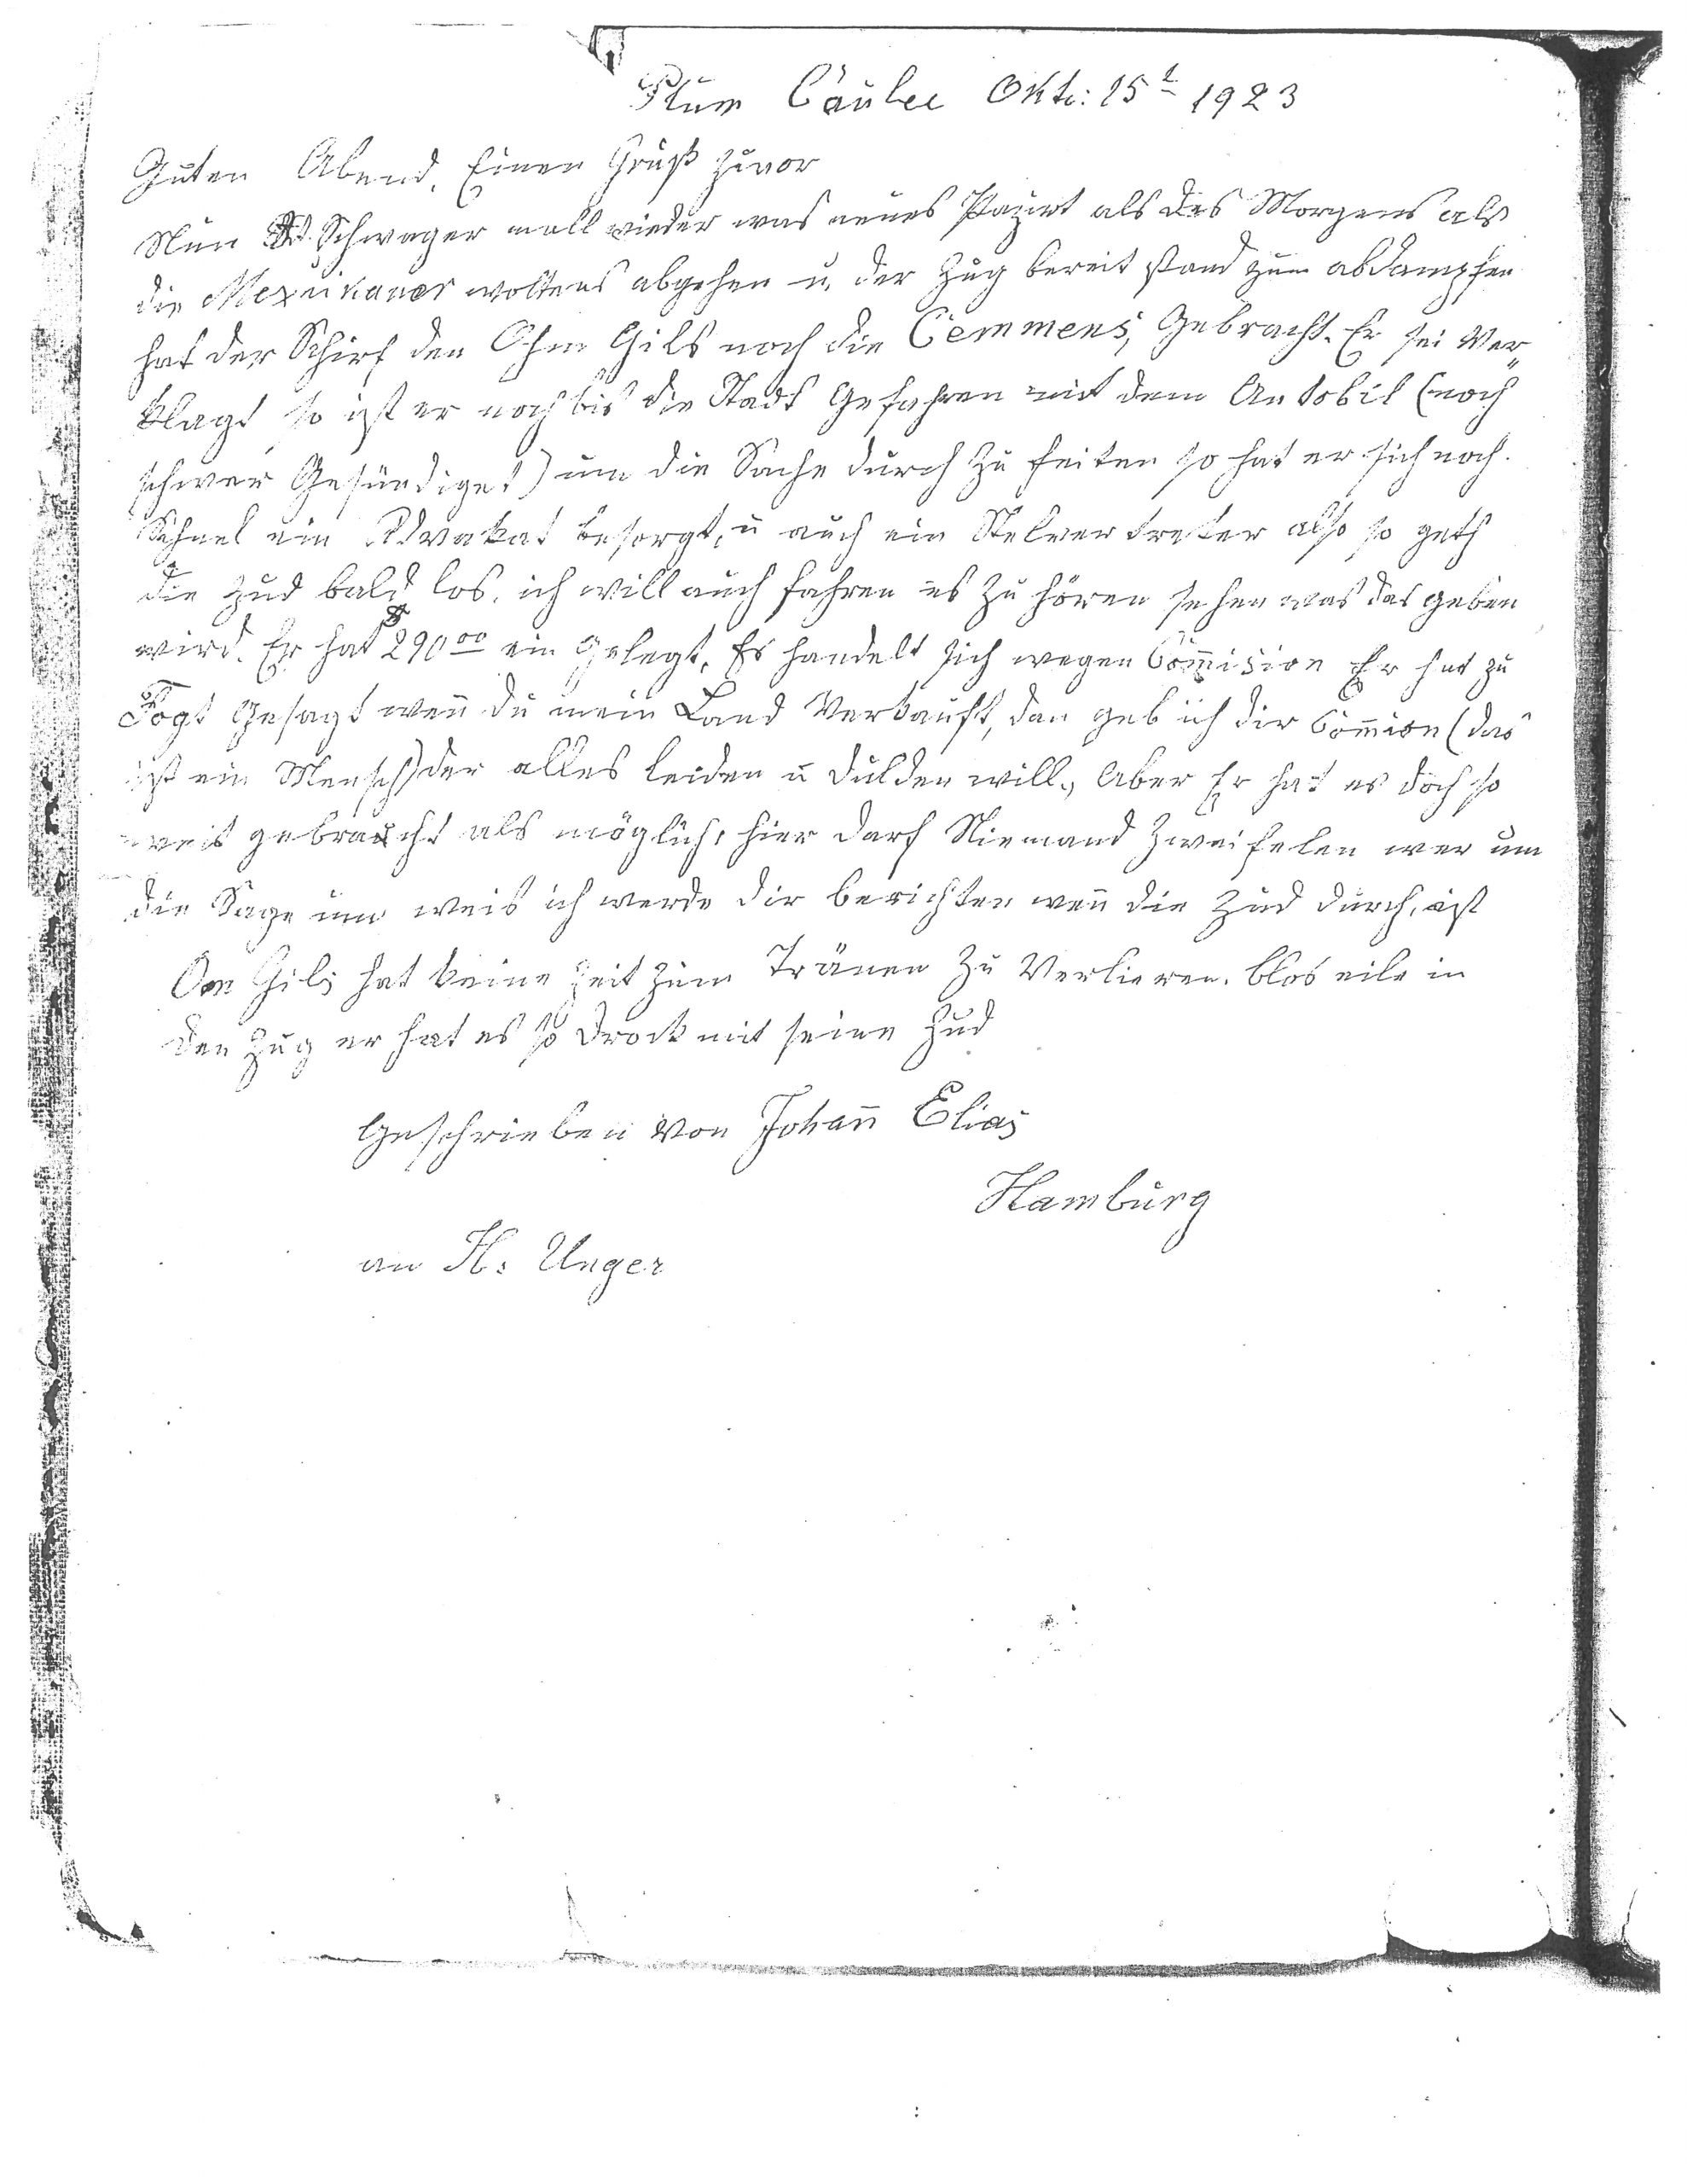 Plum Coulee Okto: 15t 1923
Guten Abend, Einen Gruß zuvor
Nun W. Schwager mall wieder was neues Pazirt als des Morgens als
die Mexikaner woltens abgehen u. der Zug bereit stand zum abdampfen
hat der Schirf den Ohm Gils noch die Cemmens, Gebracht. Er sei Ver„
klagt so ist er noch bis die Stadt Gefahren mit dem Autobil (noch
schwer Gesündiget) um die Sache durch zu feiten so hat er sich noch.
Schnel ein Advakat besorgt, u auch ein Stelvertreter also so geth
die Zud bald los, ich will auch fahren es zu hören sehen was das geben
wird. Er hat $290 00 ein gelegt, Es handelt sich wegen Com̅ision Er hat zu
Fogt Gesagt wen̅ du mein Land Verkaufst, dan geb ich dir Com̅ion (das
ist ein Mensch) der alles leiden u dulden will, Aber Er hat es doch so
weit gebracht als möglich, hier darf Niemand Zweifelen wer um
die Sage um weis ich werde dir berichten wen̅ die Zud durch, ist
Om Gils hat keine Zeit zum Tränen zu Verlieren. blos eile in
den Zug er hat es so drock mit seine Zud
Geschrieben von Johan̅ Elias
Hamburg
an H: Unger